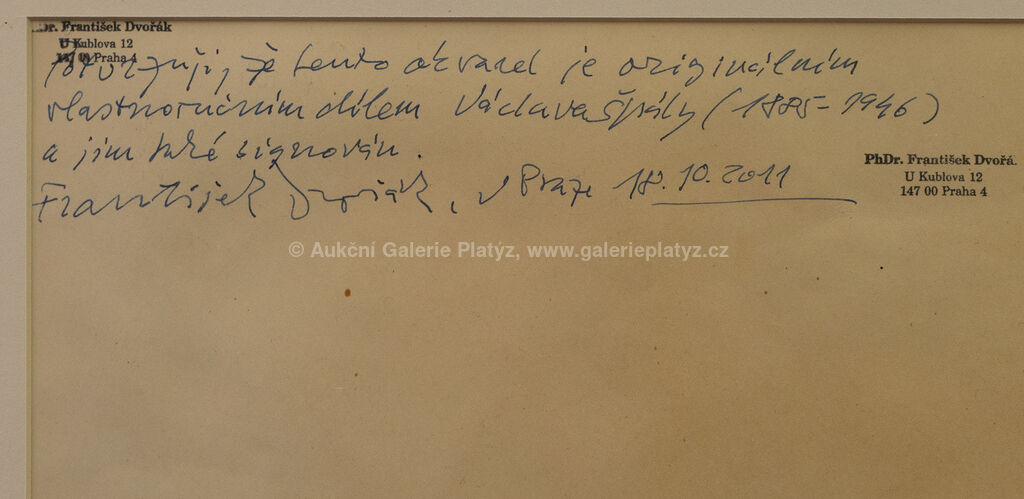 PhDr. František Dvořák
U Kublova 12
147 00 Praha 4
Potvrzuji, že tento akvarel je originálním
vlastnoručním dílem Václava Špály (1885-1946)
a jím také signován.
František Dvořák, v Praze 18.10.2011
PhDr. František Dvořá
U Kublova 12
147 00 Praha 4
© Aukční Galerie Platýz, www.galerieplatyz.cz